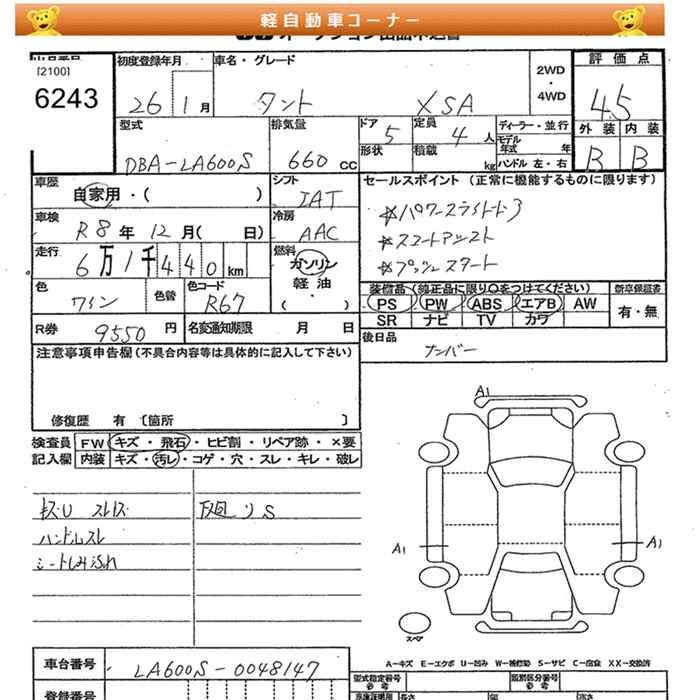 軽自動車コーナー
[2100]
6243
初度登録年月
26 1月
車名・グレード
タント XSA
2WD
・
4WD
評価点
4.5
外装 内装
B B
型式
DBA-LA600S
排気量
660 CC
ドア 5
形状
定員 4 人
積載 kg
ディーラー・並行
モデル年式 年
ハンドル 左・右
車歴
自家用・( )
シフト
IAT
車検
R8年 12月( 日)
冷房
AAC
走行
6万1千440km
燃料
ガソリン
・
軽油
( ・ )
色
ワイン
色替
色コード
R67
R券 9550円
名変通知期限 月 日
セールスポイント (正常に機能するものに限ります)
☆パワースライドド
☆スマートアシスト
☆プッシュスタート
装備品(純正品に限り○をつけてください)
PS PW ABS エアB AW
SR ナビ TV カワ
新車保証書
有・無
後日品
ナンバー
注意事項申告欄(不具合内容等は具体的に記入して下さい)
修復歴 有 〔箇所 〕
検査員 FW キズ・飛石・ヒビ割・リペア跡・×要
記入欄 内装 キズ・汚レ・コゲ・穴・スレ・キレ・破レ
キズU スレキズ
ハンドルスレ
シートしみ汚れ
下廻りS
A1
A1
A1
スペア
A-キズ E-エクボ U-凹み W-補修跡 S-サビ C-腐食 XX-交換済
車台番号
LA600S-0048147
登録番号
型式指定番号
参考
類別区分番号
参考
長さ
幅
高さ